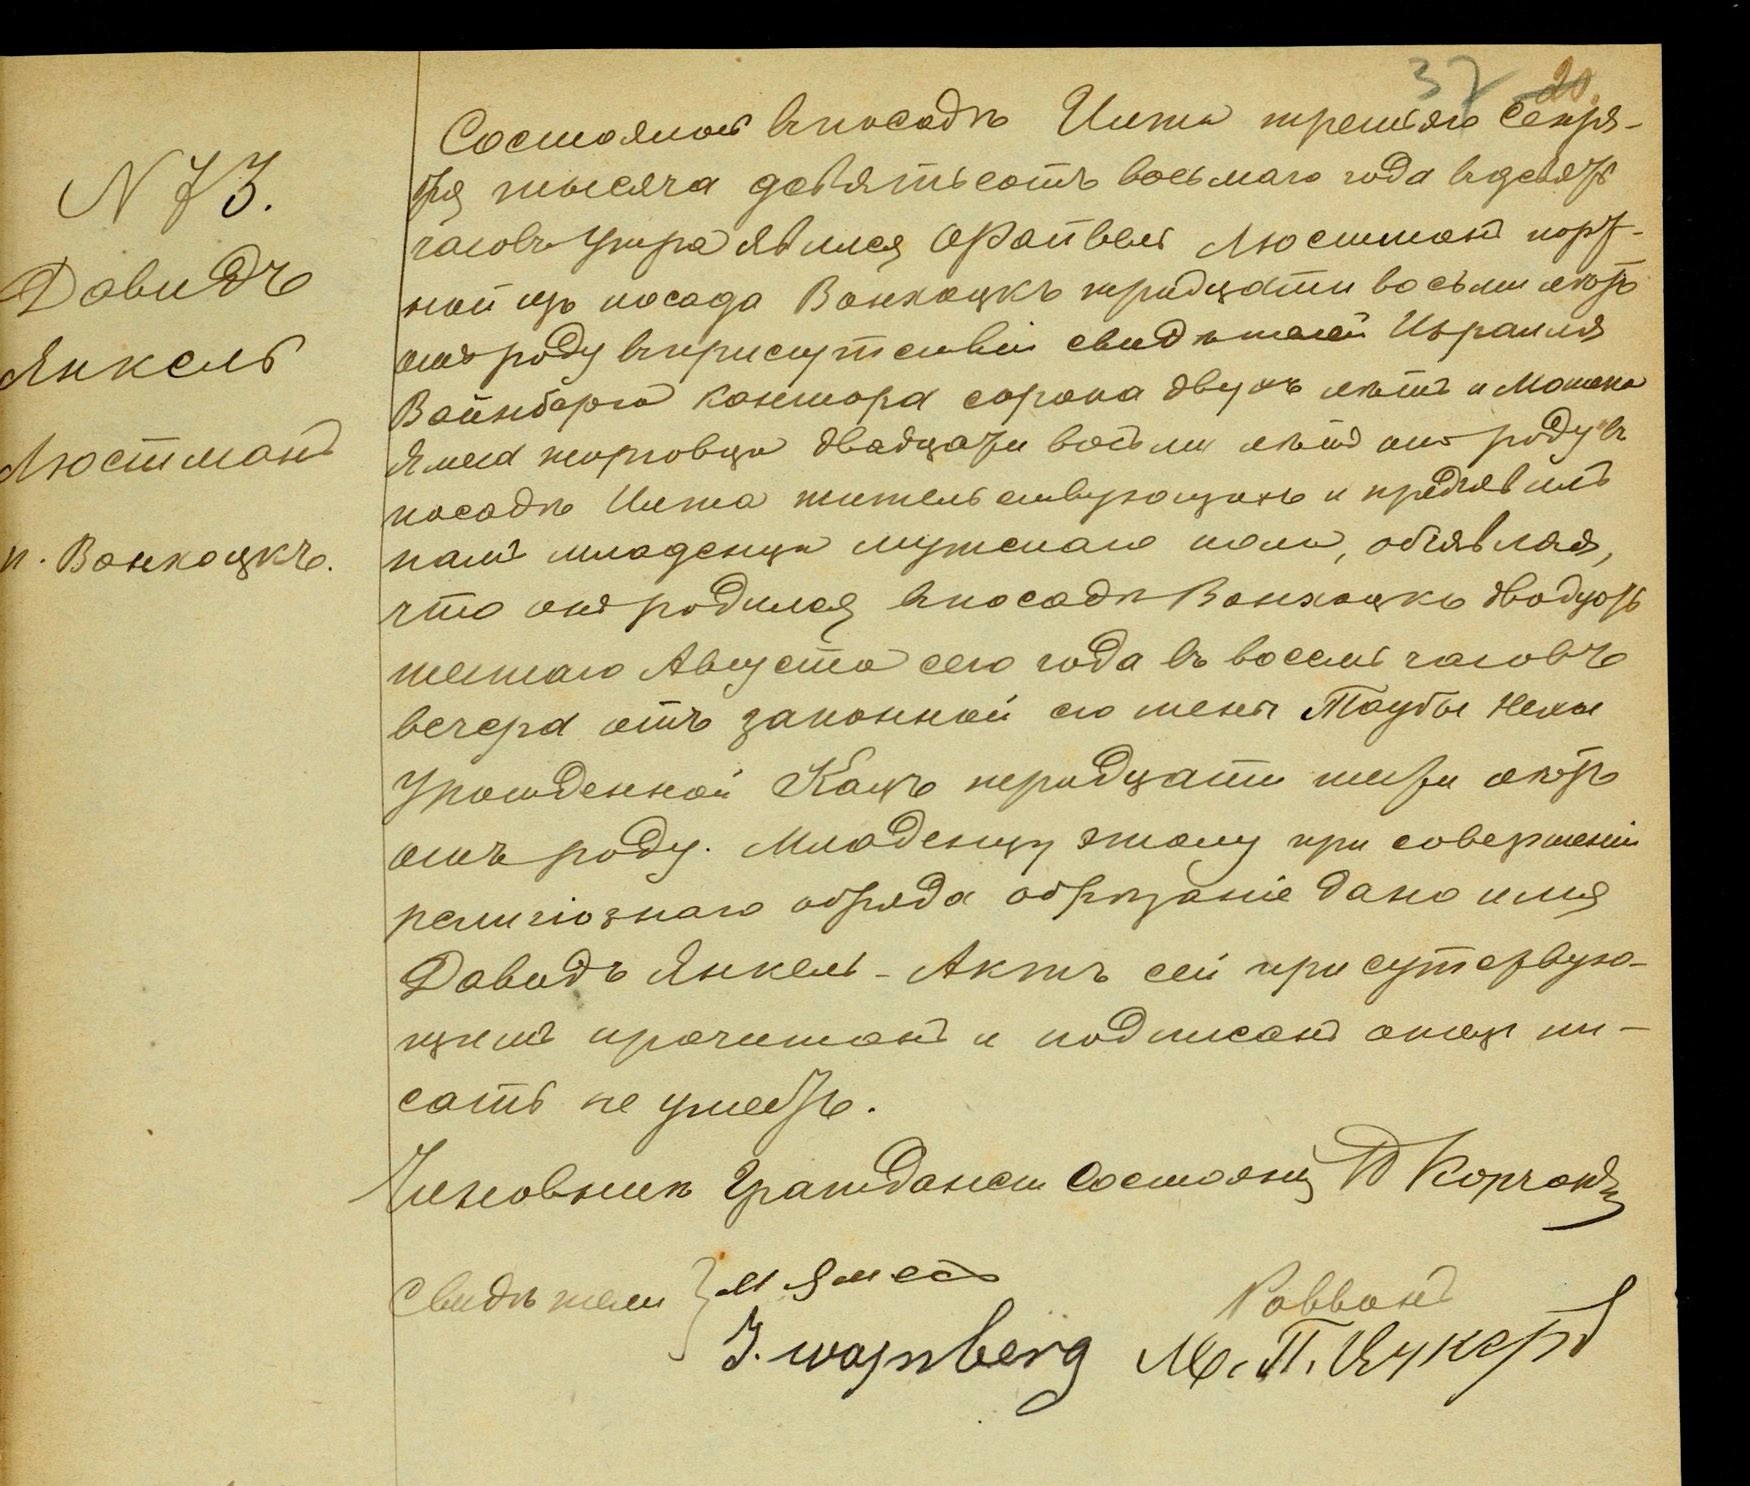 37 20.
N 73.
Давидъ
Янкель
Люстманъ
п. Вонхоцкъ.
Состоялось въ посадѣ Илжа третьяго Сентя-
бря тысяча девятьсотъ восьмаго года въ девять
часовъ утра явился Файвель Люстманъ порт-
ной изъ посада Вонхоцкъ тридцати восьми лѣтъ
отъ роду въ присутствіи свидѣтелей Израиля
Вайнберга кантора сорока двухъ лѣтъ и Мошека
Ямеса торговца двадцати восьми лѣтъ отъ роду въ
посадѣ Илжа жительствующихъ и предъявилъ
намъ младенца мужескаго пола, объявляя,
что онъ родился въ посадѣ Вонхоцкъ двадцать
шестаго Августа сего года въ восемь часовъ
вечера отъ законной его жены Таубы Нехи
урожденной Кацъ тридцати пяти лѣтъ
отъ роду. Младенцу этому при совершеніи
религіознаго обряда обрѣзаніе дано имя
Давидъ Янкель - Актъ сей присутствую-
щимъ прочитанъ и подписанъ отецъ пи-
сать не умеетъ.
Чиновникъ Гражданск Состоянія
Свидѣтели } М Ямесъ
Раввинъ
J. wajnberg М. П. Цукеръ